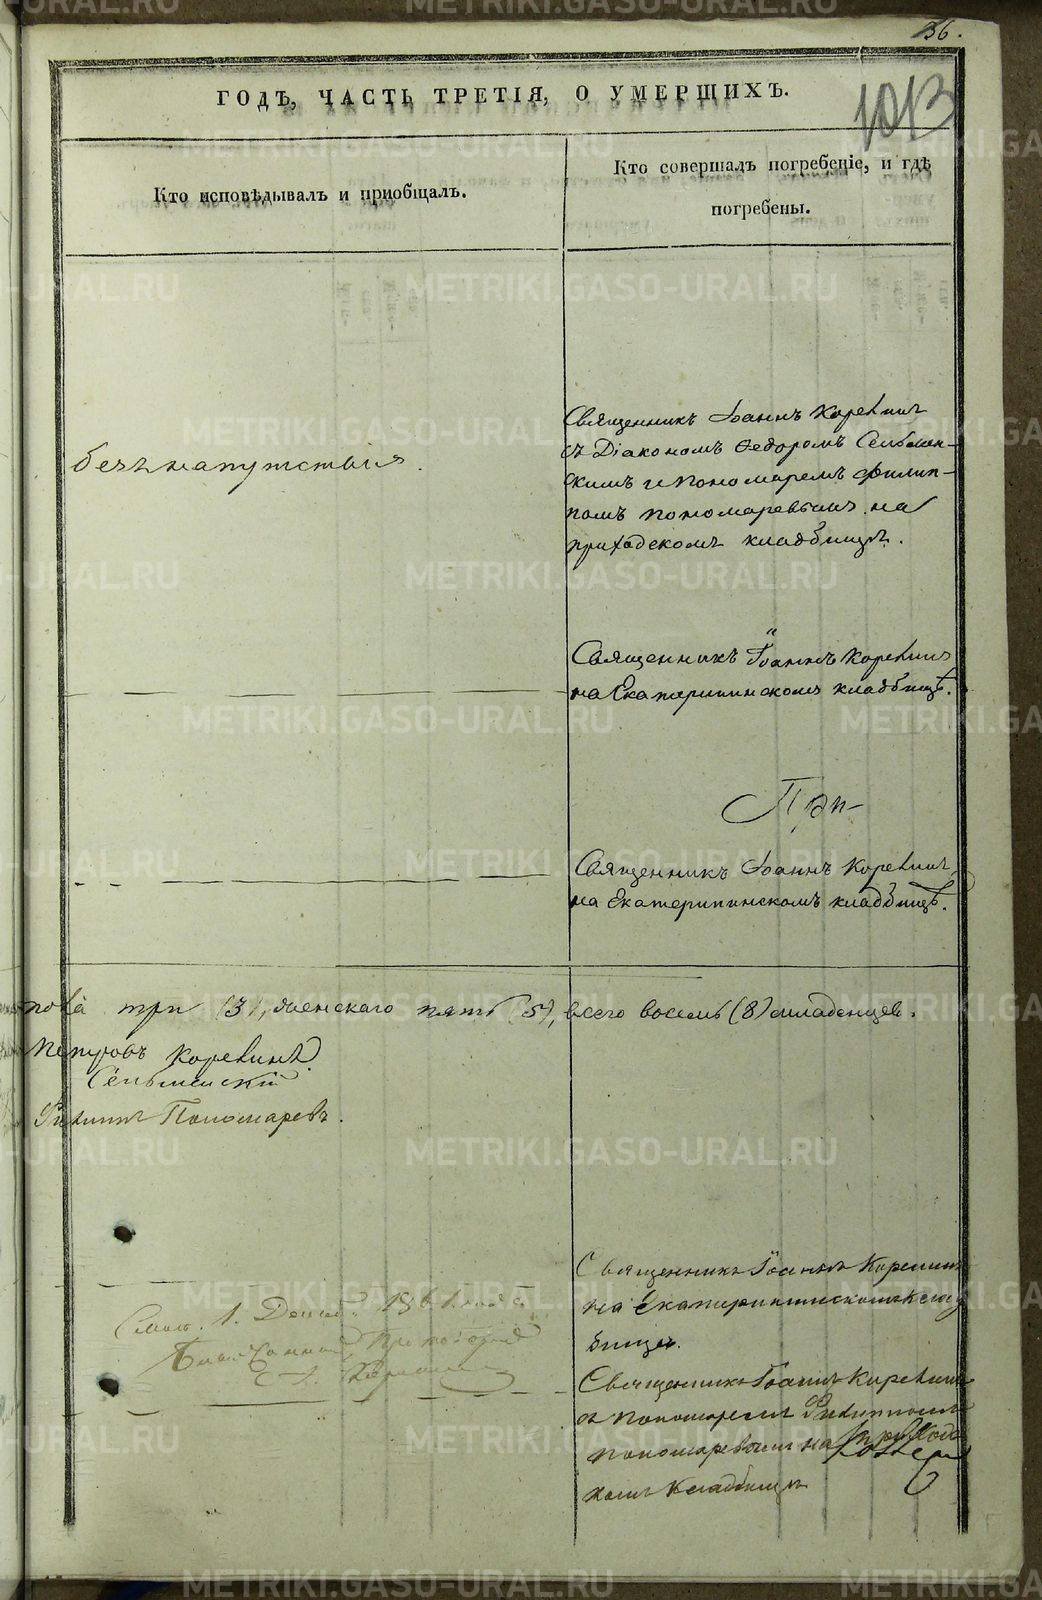 36.
1013
ГОДЪ, ЧАСТЬ ТРЕТІЯ, О УМЕРШИХЪ.
Кто исповѣдывалъ и приобщалъ.
Кто совершалъ погребеніе, и гдѣ
погребены.
безъ напутствія.
Священникъ Іоаннъ Коровинъ
съ Діакономъ Ѳедоромъ Сельмен-
скимъ и Пономаремъ Филип-
помъ Пономаревымъ на
приходскомъ кладбищѣ.
Священникъ Іоаннъ Коровинъ
на Екатерининскомъ кладбищѣ.
При-
Священникъ Іоаннъ Коровинъ
на Екатерининскомъ кладбищѣ.
пола три (3), женскаго пять (5), всего восемь (8) младенцевъ.
Петровъ Коровинъ.
Сельменскій
Филиппъ Пономаревъ.
Священникъ Іоаннъ Коровинъ
на Екатерининскомъ клад
бищѣ.
1861 года
Благочинный
Священникъ Іоаннъ Коровинъ
съ Пономаремъ Филиппомъ
Пономаревымъ на приход
комъ кладбищѣ
METRIKI.GASO-URAL.RU